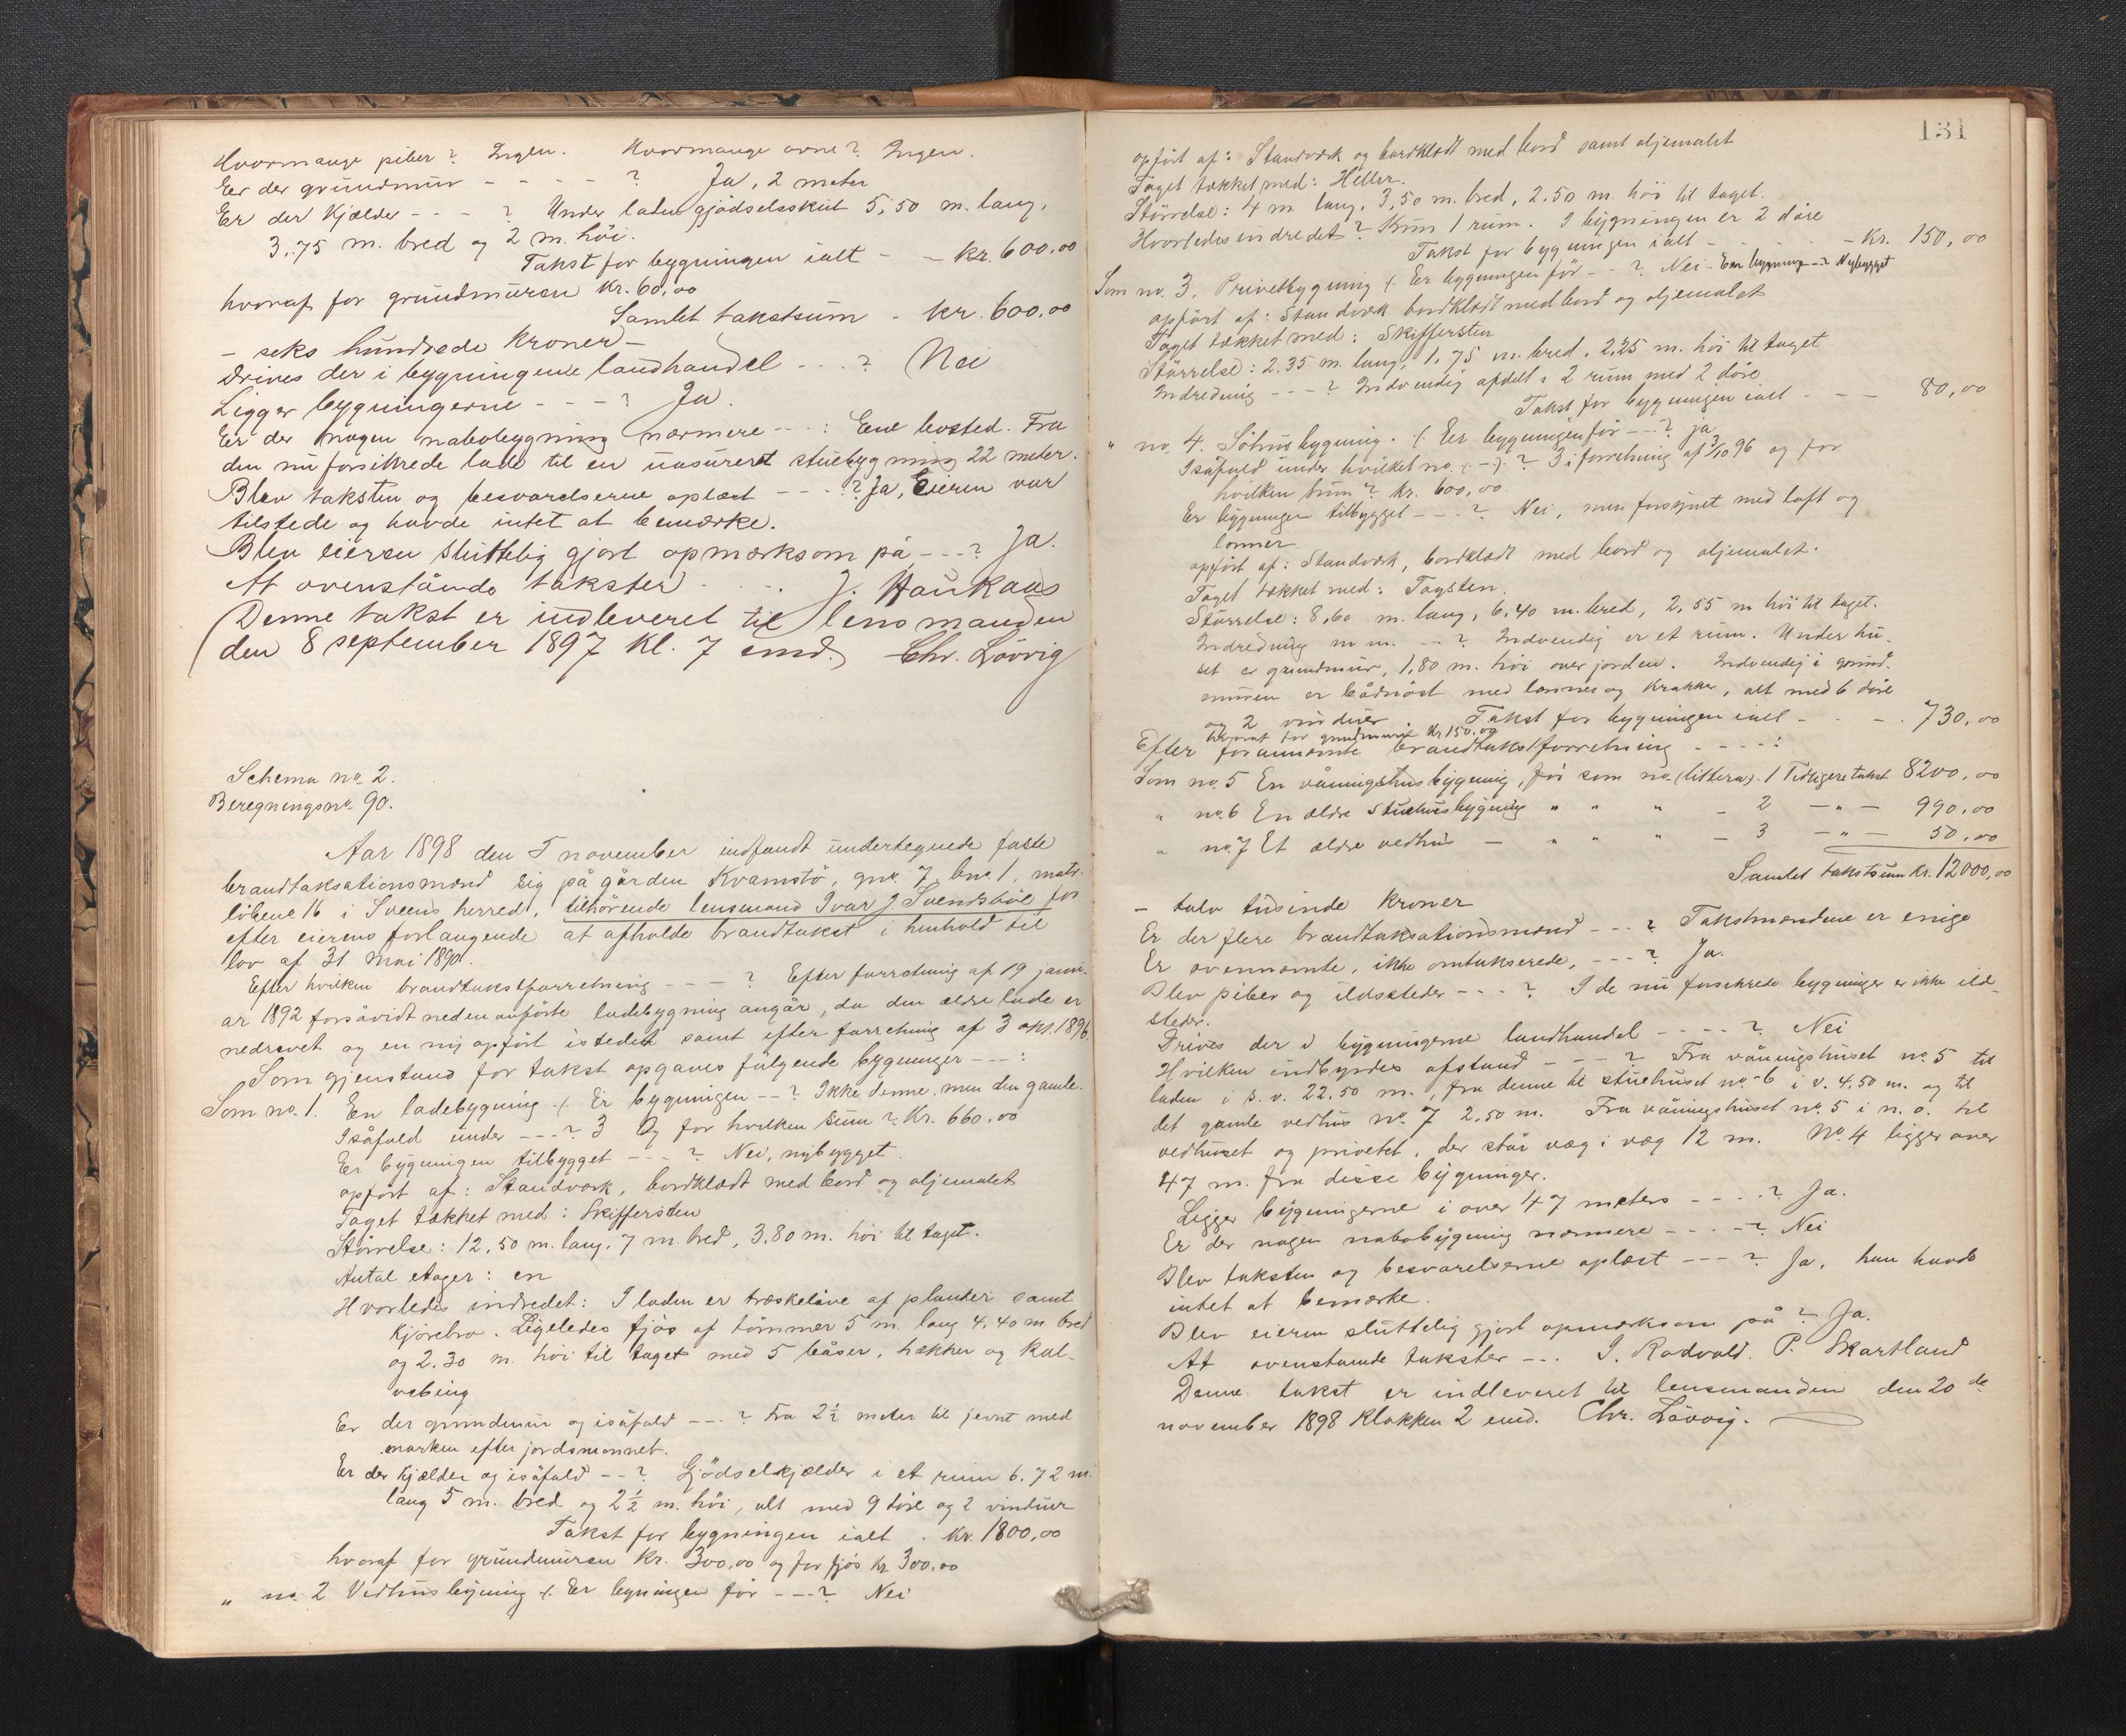 Hvormange piber? Ingen. Hvormange ovne? Ingen.
Er der grundmur - - - - ? Ja, 2 meter
Er der kjælder - - - ? Under laden gjödselskut 5,50 m. lang,
3,75 m. bred og 2 m. høi.
Takst for bygningen ialt - - Kr. 600,00
hvoraf for grundmuren Kr. 60,00
Samlet takstsum - kr. 600,00
- seks hundrede kroner -
Drives der i bygningene landhandel - - - ? Nei
Ligger bygningerne - - - ? Ja.
Er der nogen nabobygning nærmere - - - : Ene bosted. Fra
den nu forsikrede lade til en uasureret stuebygning 22 meter.
Blev taksten og besvarelserne oplæst - - - ? Ja, Eieren var
tilstede og havde intet at bemærke.
Blev eieren sluttelig gjort opmærksom på - - - ? Ja.
At ovenstående takster - . . J. Haukaas
(Denne takst er indleveret til lensmanden
den 8 september 1897 kl. 7 emd.) Chr. Lövvig
Schema no 2.
Beregningsno 90.
Aar 1898 den 5 november indfandt undertegnede faste
brandtaksationsmænd sig på gården Kvamstö, gno. 7, bno. 1, matr.
löbene 16 i Sveens herred, tilhörende lensmand Ivar J. Svendsböe for
efter eierens forlangende at afholde brandtakst i henhold til
lov af 31 Mai 1890.
Efter hvilken brandtakstforretning - - - ? Efter forretning af 19 janu-
ar 1892 forsåvidt nedenanförte ladebygning angår, da den ældre lade er
nedrevet og en ny opfört istedet samt efter forretning af 3 okt. 1896.
Som gjenstand for takst opgaves fölgende bygninger - - - :
Som no. 1. En ladebygning ./. Er bygningen - - ? Ikke denne, men den gamle.
Isåfald under - - - ? 3 Og for hvilken sum? Kr. 660,00
Er bygningen tilbygget - - - ? Nei, nybygget.
opfört af: Standværk, bordklædt med bord og oljemalet
Taget tækket med: Skiffersten
Störrelse: 12,50 m. lang, 7 m. bred, 3,80 m. höi til taget.
Antal etager: en
Hvorledes indredet: I laden er træskelåve af planker samt
kjörebro. Ligeledes fjös af tömmer 5 m. lang 4,40 m. bred
og 2,30 m. höi til taget med 5 båser, hækker og kal-
vebing
Er der grundmur og isåfald - - - ? Fra 2½ meter til jevnt med
marken efter jordsmonnet.
Er der kjælder og isåfald - - ? Gjödselkjælder i et rum 6,72 m.
lang 5 m. bred og 2½ m. höi, alt med 9 döre og 2 vinduer
Takst for bygningen ialt . Kr. 1800,00
hvoraf for grundmuren kr. 300,00 og for fjös kr. 300,00
" no. 2 Vedhusbygning ./. Er bygningen för - - - ? Nei
131
opfört af: Standværk og bordklædt med bord samt oljemalet
Taget tækket med: Heller.
Störrelse: 4 m. lang, 3,50 m. bred, 2,50 m. höi til taget.
Hvorledes indredet? Kun 1 rum. I bygningen er 2 döre
Takst for bygningen ialt - - - - Kr. 150,00
Som no. 3. Privetbygning ./. Er bygningen för - - ? Nei - Er bygning - ? Nybygget
opfört af: Standværk bordklædt med bord og oljemalet
Taget tækket med: Skiffersten
Störrelse: 2.35 m. lang, 1,75 m. bred, 2,25 m. höi til taget
Indredning - - - ? Indvendig afdelt i 2 rum med 2 döre
Takst for bygningen ialt - - - 80,00
" no. 4. Söhusbygning. ./. Er bygningen för - - ? ja
Isåfald under hvilket no. (-)? 3 i forretning af 3/10 96 og for
hvilken sum? kr. 600,00.
Er bygningen tilbygget - - - ? Nei, men forsynet med loft og
lonner.
opfört af: Standværk, bordklædt med bord og oljemalet.
Taget tækket med: Tagsten.
Störrelse: 8,60 m. lang, 6,40 m. bred, 2,55 m höi til taget.
Indredning m. m. - - ? Indvendig er et rum. Under hu-
set er grundmur, 1,80 m. höi over jorden. Indvendig i grund-
muren er bådnöst med lonner og krakker, alt med 6 döre
og 2 vinduer. Takst for bygningen ialt - - - . 730,00
hvoraf for grundmuren Kr 150,00
Efter forannævnte brandtakstforretning - - - - :
Som no. 5 En våningshusbygning, för som no. (littera). 1 Tidligere takst 8200,00
" no. 6 En ældre stuehusbygning " " " - 2 - " - 990,00
" no. 7 Et ældre vedhus - " " " - 3 - " - 50,00
Samlet takstsum kr. 12000,00
- tolv tusinde kroner
Er der flere brandtaksationsmænd - - - ? Takstmændene er enige
Er ovennævnte, ikke omtakserede, - - - ? Ja.
Blev piber og ildsteder - - - ? I de nu forsikrede bygninger er ikke ild-
steder.
Drives der i bygningerne landhandel - - - - ? Nei
Hvilken indbyrdes afstand - - - ? Fra våningshuset no. 5 til
laden i s. v. 22.50 m., fra denne til stuehuset no. 6 i v. 4.50 m. og til
det gamle vedhus no. 7 2,50 m. Fra våningshuset no. 5 i n. o. til
vedhuset og privetet, der står væg i væg 12 m. No. 4 ligger over
47 m. fra disse bygninger.
Ligger bygningerne i over 47 meters - - - - ? Ja.
Er der nogen nabobygning nærmere - - - - ? Nei
Blev taksten og besvarelserne oplæst - - - ? Ja, han havde
intet at bemærke.
Blev eieren sluttelig gjort opmærksom på? Ja.
At ovenstående takster - - - I. Rodvold. P. Skartland
Denne takst er indleveret til lensmanden den 20 de
november 1898 klokken 2 emd. Chr. Lövvig.